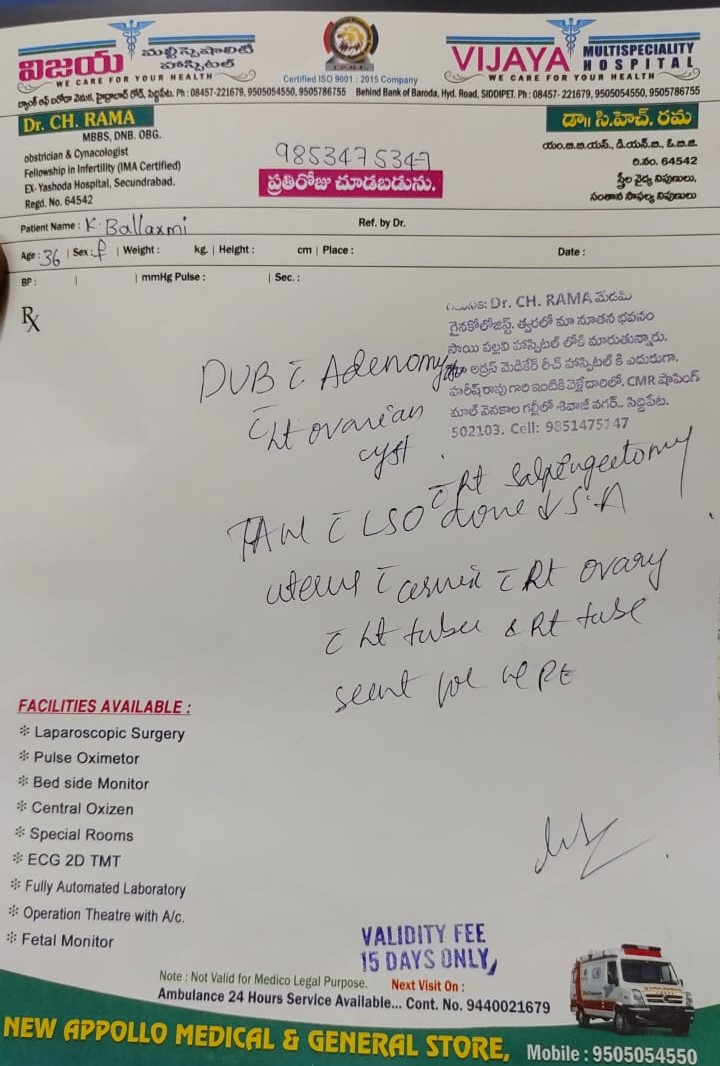 విజయ మల్టీస్పెషాలిటీ హాస్పిటల్
WE CARE FOR YOUR HEALTH
Certified ISO 9001 : 2015 Company
VIJAYA MULTISPECIALITY HOSPITAL
WE CARE FOR YOUR HEALTH
బ్యాంక్ ఆఫ్ బరోడా వెనుక, హైద్రాబాద్ రోడ్, సిద్దిపేట. Ph : 08457-221679, 9505054550, 9505786755 Behind Bank of Baroda, Hyd. Road, SIDDIPET. Ph : 08457- 221679, 9505054550, 9505786755
Dr. CH. RAMA
MBBS, DNB. OBG.
obstrician & Cynacologist
Fellowship in Infertility (IMA Certified)
EX- Yashoda Hospital, Secundrabad.
Regd. No. 64542
9853475347
ప్రతిరోజు చూడబడును.
డా|| సి.హెచ్. రమ
యం.బి.బి.ఎస్., డి.యన్.బి., ఓ.బి.జి.
రి.నం. 64542
స్త్రీల వైద్య నిపుణులు,
సంతాన సాఫల్య నిపుణులు
Patient Name : K. Ballaxmi Ref. by Dr.
Age : 36 | Sex : f | Weight : kg. | Height : cm | Place : Date :
BP : | | mmHg Pulse : | Sec. :
Rx
Dr. CH. RAMA మేడమ్
గైనకోలోజిస్ట్. త్వరలో మా నూతన భవనం
సాయి పల్లవి హాస్పిటల్ లోకి మారుతున్నారు.
అడ్రస్ మెడికేర్ రీచ్ హాస్పిటల్ కి ఎదురుగా.
హరీష్ రావు గారి ఇంటికి వెళ్లేదారిలో. CMR షాపింగ్
మాల్ వెనకాల గల్లీలో శివాజీ నగర్.. సిద్దిపేట.
502103. Cell: 9851475147
DUB c̄ Adenomy
c̄ Lt ovarian
cyst.
c̄ Rt Salpengectomy
TAH c̄ LSO done S.A
uterus c̄ cervix c̄ Rt ovary
c̄ Lt tube & Rt tube
sent for HPE
FACILITIES AVAILABLE :
❇ Laparoscopic Surgery
❇ Pulse Oximetor
❇ Bed side Monitor
❇ Central Oxizen
❇ Special Rooms
❇ ECG 2D TMT
❇ Fully Automated Laboratory
❇ Operation Theatre with A/c.
❇ Fetal Monitor
VALIDITY FEE
15 DAYS ONLY,
Note : Not Valid for Medico Legal Purpose. Next Visit On :
Ambulance 24 Hours Service Available... Cont. No. 9440021679
NEW APPOLLO MEDICAL & GENERAL STORE, Mobile : 9505054550